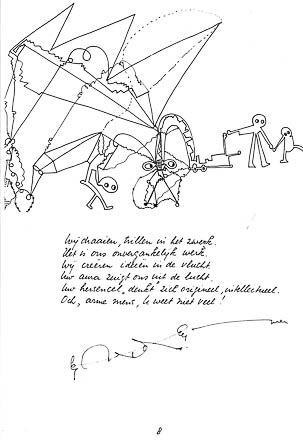 Wij draaien, trillen in het zwerk.
Het is ons onvergankelijk werk.
Wij creëren ideeën in de vlucht.
Uw aura zuigt ons uit de lucht.
Uw hersencel, denkt zich origineel, intellectueel.
Och, arme mens, U weet niet veel!
8